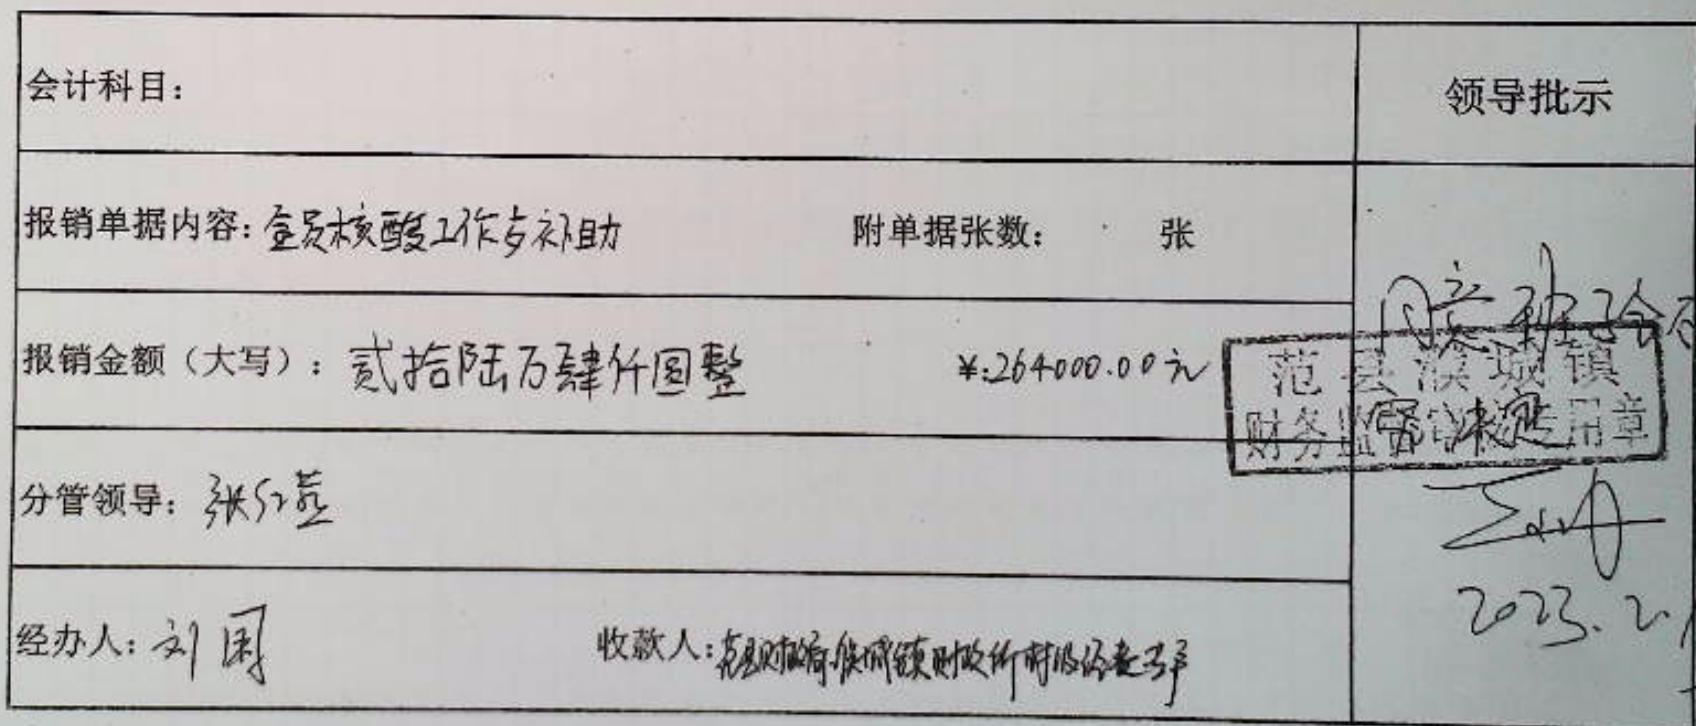 会计科目：
领导批示
报销单据内容：全员核酸工作与补助 附单据张数： 张
同意
报销金额（大写）：贰拾陆万肆仟圆整 ¥:264000.00元
范县濮城镇
财务监督审核专用章
分管领导：张红燕
2023.2.1
经办人：刘国 收款人：范县财政局濮城镇财政所村级经费专户